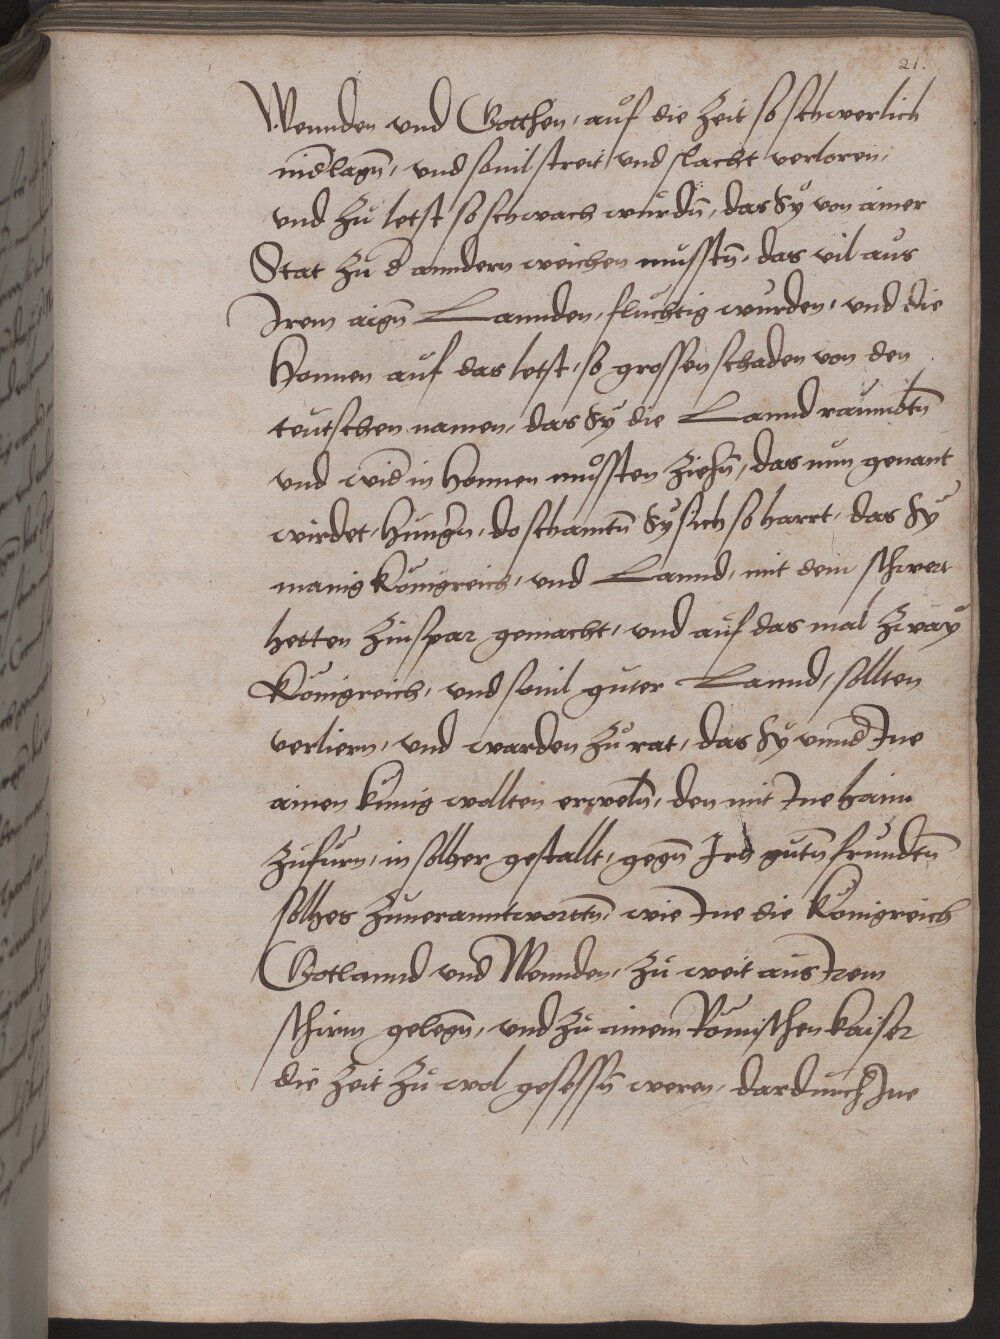 21.
Wennden vnd Gotthen, auf die Zeit so schwerlich
nid̄lagn̄, vnd souil streit vnd slacht verloren,
vnd zu letst so schwach wurdn̄, das Sy von ainer
Stat zu d̄ anndern weichen musstn̄, das vil aus
Irem aign̄ Lannden, fluchtig wurden, vnd die
Honnen auf das letst, so grossen schaden von den
teutschen namen, das Sy die Lannd raumbtn̄
vnd wid̄ in Honnen mussten ziehn̄, das nun genant
wirdet, Hungrn̄, do schamtn̄ Sy sich so harrt, das Sy
manig Königreich, vnd Lannd, mit dem schwert
hetten zinspar gemacht, vnd auf das mal zway
Königreich, vnd souil guter Lannd, sollten
verliern, vnd warden zu rat, das Sy vnnd̄ Ine
ainen kunig wollten erweln̄, den mit Ine haim
zufurn, in solher gestallt, gegn̄ Irn gutn̄ frundtn̄
solhes zuuerantworttn̄, wie Ine die Königreich
Gotlannd vnd Wennden, zu weit aus Irem
schirm gelegn̄, vnd zu ainem Römischen kaiser
die Zeit zu wol gesessn̄ weren, dardurch Ine